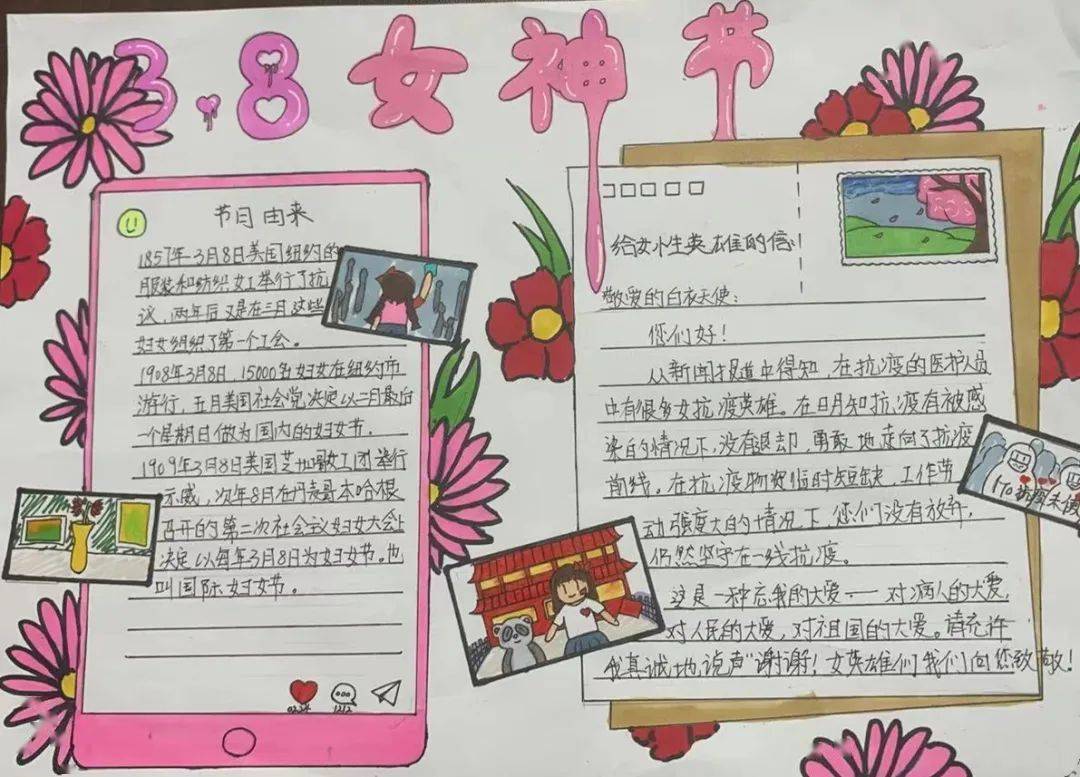 3.8女神节
节日由来
1857年3月8日美国纽约的
服装和纺织女工举行了抗
议，两年后又是在三月这些
妇女组织了第一个工会。
1908年3月8日，15000名妇女在纽约市
游行，五月美国社会党决定以二月最后
一个星期日做为国内的妇女节。
1909年3月8日美国芝加哥女工团举行
示威，次年8月在丹麦哥本哈根
召开的第二次社会主义妇女大会上
决定以每年3月8日为妇女节。也
叫国际妇女节。
1212
给女性英雄的信
敬爱的白衣天使：
您们好！
从新闻报道中得知，在抗疫的医护人员
中有很多女抗疫英雄。在日月知抗疫有被感
染的情况下，没有退却，勇敢地走向了抗疫
前线。在抗疫物资临时短缺，工作劳
动强度大的情况下，您们没有放弃，
仍然坚守在一线抗疫。
这是一种忘我的大爱——对病人的大爱，
对人民的大爱，对祖国的大爱。请允许
我真诚地说声“谢谢！女英雄们我们向您致敬！